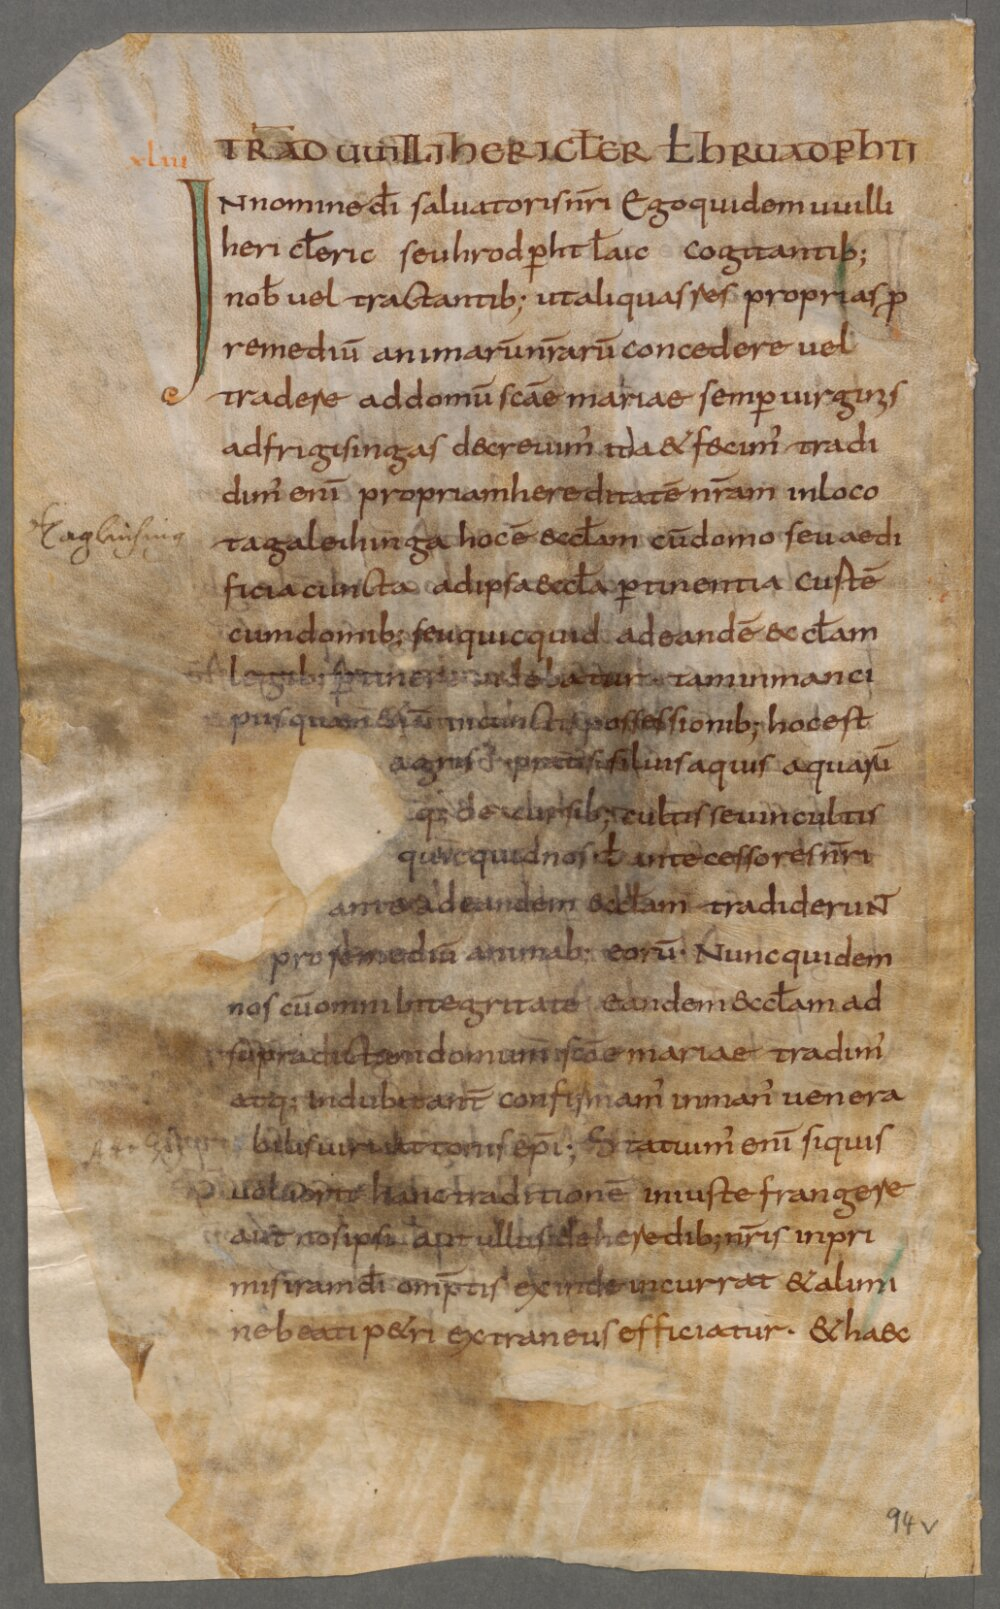 xliii TRAD UUILLIHERI CLER & HRUADPHTI
IN nomine di salvatoris nri Ego quidem uuilli
heri cleric seu hrodpht laic cogitantib;
nob vel tractantib; ut aliquas res proprias p
remediū animarū nrarū concedere vel
tradere ad domū scae mariae semp virginis
ad frigisingas decrevim' ita & fecim' tradi
dim' eni propriam hereditatē nram in loco
Taglaching
tagaleihinga hoc ē ecclam cū domo seu aedi
ficia cuncta ad ipsa eccla ptinentia cū stē
cum domib; seu quicquid ad eandē ecclam
legib; ptinere videbatur tam in manci
piis quam etiā in cunctis possessionib; hoc est
agris pratis silvis aquis aquarū
q; decursib; cultis seu incultis
quicquid nos vel antecessores nri
antea ad eandem ecclam tradiderunt
pro remediū animab; eorū. Nunc quidem
nos cū omni integritate eandem ecclam ad
supradictam domum scae mariae tradim'
atq; indubitant confirmam' in man' venera
bilis viri attonis epi; Statuim' eni siquis
voluerit hanc traditionē iniuste frangere
aut nos ipsi aut ullus de heredib; nris in pri
mis iram di omptis exinde incurrat & a limi
ne beati petri extraneus efficiatur. & haec
94v